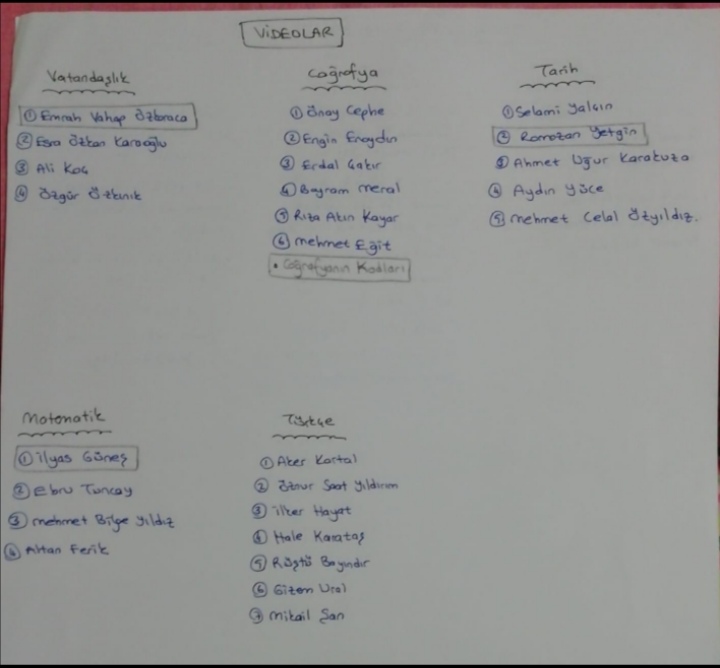 VİDEOLAR
Vatandaşlık
① Emrah Vahap Özkaraca
② Esra Özkan Karaoğlu
③ Ali Koç
④ Özgür Özkınık
Coğrafya
① Önay Cephe
② Engin Eraydın
③ Erdal Çakır
④ Bayram meral
⑤ Rıza Akın Kayar
⑥ mehmet Eğit
• Coğrafyanın Kodları
Tarih
① Selami Yalçın
② Ramazan Yetgin
③ Ahmet Uğur Karakuza
④ Aydın Yüce
⑤ mehmet Celal Özyıldız.
Matematik
① ilyas Güneş
② Ebru Tuncay
③ mehmet Bilge Yıldız
④ Altan Ferik
Türkçe
① Aker Kartal
② Öznur Saat Yıldırım
③ ilker Hayat
④ Hale Karataş
⑤ Rüştü Bayındır
⑥ Gizem Ural
⑦ mikail Şan